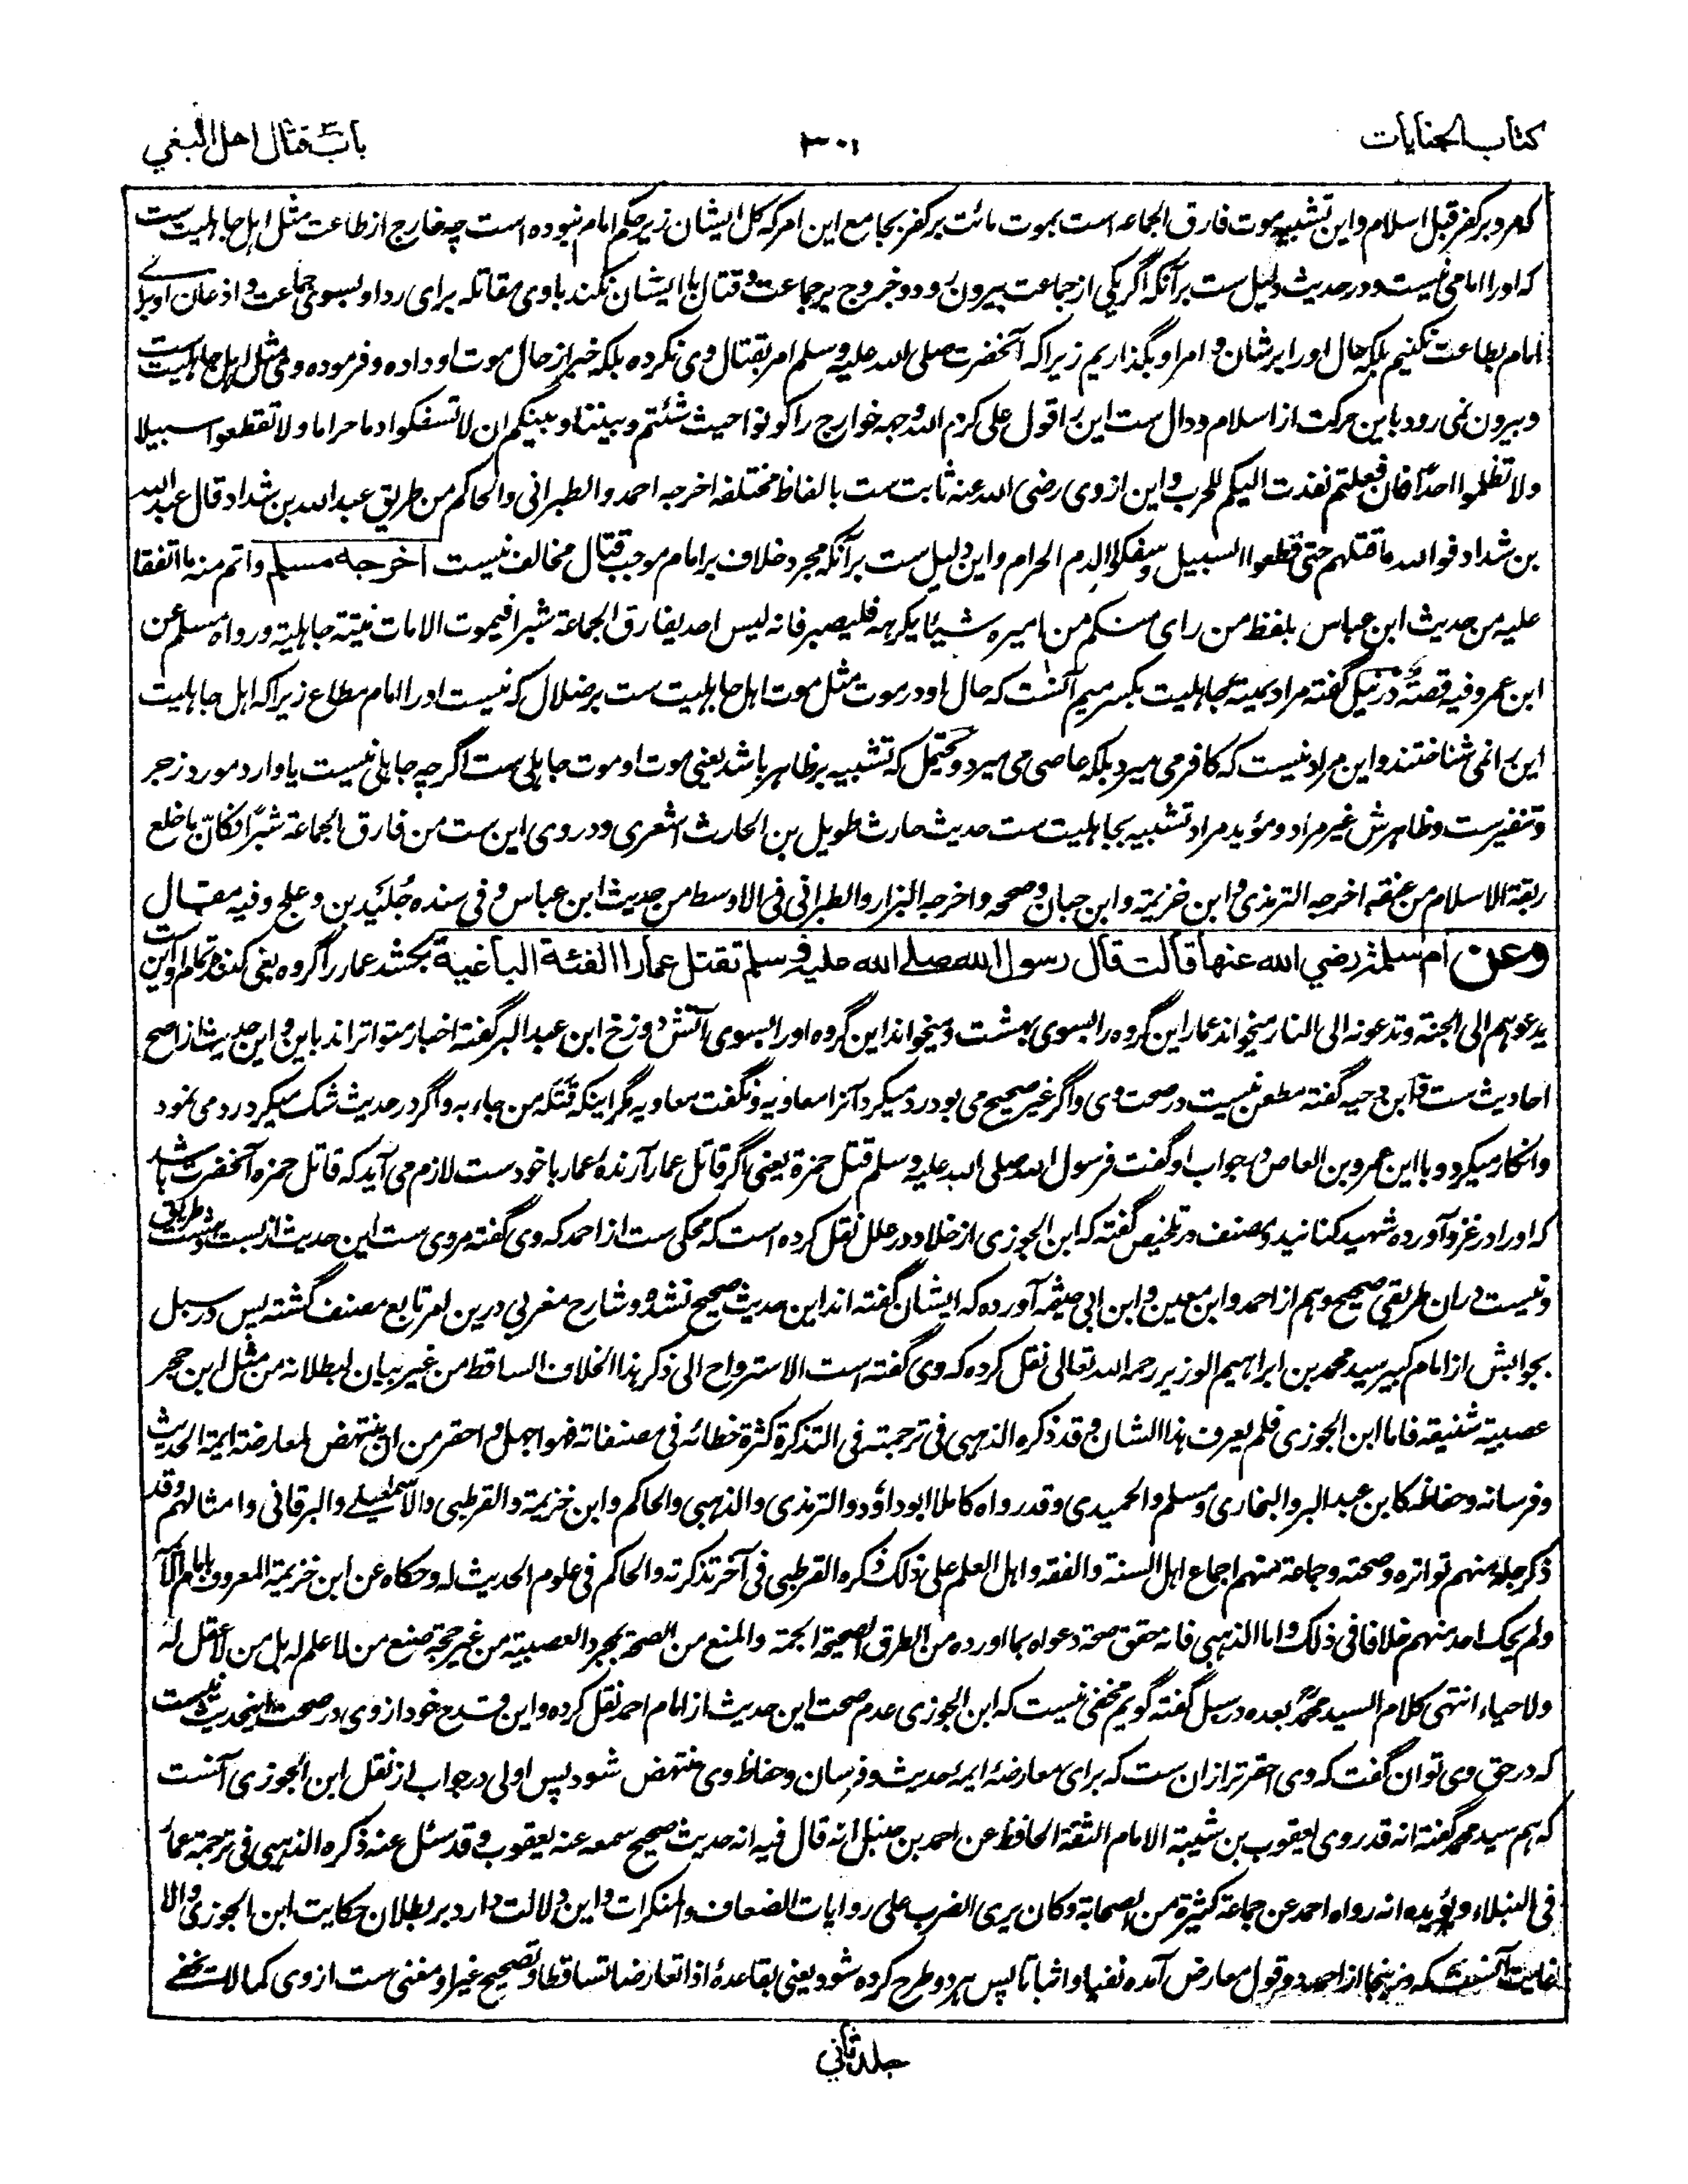 كتاب الجنايات
٣٠١
باب قتال اهل البغي
که مرد بر کفر قبل اسلام و این تشبیه موت فارق الجماعه است بموت مائت بر کفر بجامع این امر که کل ایشان زیر حکم امام نبوده است چه خارج از طاعت مثل اهل جاهلیت ست
که او را امامی نیست و در حدیث دلیل ست برآنکه اگر یکی از جماعت بیرون رود و خروج بر جماعت و قتال با ایشان نکند باوی مقاتله برای رد او بسوی جماعت و اذعان او برای
امام بطاعت نکنیم بلکه حال او را بر شان و امر او بگذاریم زیرا که آنحضرت صلی الله علیه وسلم امر بقتال وی نکرده بلکه خبر از حال موت او داده و فرموده وی مثل اهل جاهلیت ست
و بیرون نمی رود باین حرکت از اسلام و دال ست این را قول علی کرم الله وجهه خوارج را کونوا حیث شئتم و بیننا و بینکم ان لا تسفکوا دما حراما و لا تقطعوا سبیلا
ولا تظلموا احدا فان فعلتم نفذت الیکم للحرب و این از وی رضی الله عنه ثابت ست بالفاظ مختلفه اخرجه احمد والطبرانی والحاکم من طریق عبد الله بن شداد قال عبد الله
بن شداد فوالله ما قتلهم حتی قطعوا السبیل و سفکوا الدم الحرام و این دلیل ست برآنکه مجرد خلاف بر امام موجب قتال مخالف نیست اخرجه مسلم واتم منه ما اتفقا
علیه من حدیث ابن عباس بلفظ من رای منکم من امیره شیئا یکرهه فلیصبر فانه لیس احد یفارق الجماعة شبرا فیموت الا مات میتة جاهلیة ورواه مسلم عن
ابن عمر وفیه قصة در نیل گفته مراد بمیته جاهلیت بکسر میم آنست که حال او در موت مثل موت اهل جاهلیت ست بر ضلال که نیست او را امام مطاع زیرا که اهل جاهلیت
این را نمی شناختند و این مراد نیست که کافر می میرد بلکه عاصی می میرد و محتمل که تشبیه بر ظاهر باشد یعنی موت او موت جاهلی ست اگرچه جاهلی نیست یا وارد مورد زجر
و تنفیرست و ظاهرش غیر مراد و مؤید مراد تشبیه بجاهلیت ست حدیث حارث طویل بن الحارث اشعری و در وی این ست من فارق الجماعة شبرا فکانما خلع
ربقة الاسلام من عنقه اخرجه الترمذی و ابن خزیمة و ابن حبان و صححه و اخرجه البزار والطبرانی فی الاوسط من حدیث ابن عباس و فی سنده خلید بن دعلج وفیه مقال
وعن ام سلمة رضي الله عنها قالت قال رسول الله صلی الله علیه وسلم تقتل عمارا الفئة الباغية بکشد عمار را گروه بغی کننده تمام و این ست
یدعوهم الی الجنة و تدعونه الی النار میخواند عمار این گروه را بسوی بهشت و میخواند این گروه او را بسوی آتش دوزخ ابن عبد البر گفته اخبار متواتر اند باین و این حدیث از اصح
احادیث ست و ابن دحیه گفته مطعن نیست در صحت وی و اگر غیر صحیح می بود رد میکرد آنرا معاویه و نگفت معاویه مگر اینکه قتله من جاء به و اگر در حدیث شک میکرد رد می نمود
و انکار میکرد و با این عمرو بن العاص در جواب او گفت فرسول الله صلی الله علیه وسلم قتل حمزة یعنی اگر قاتل عمار آرنده عمار با خودست لازم می آید که قاتل حمزه آنحضرت باشد
که او را در غزو آورده شهید کنانید و مصنف در تلخیص گفته که ابن الجوزی از خلال در علل نقل کرده است که محکی ست از احمد که وی گفته مروی ست این حدیث از بست و هشت طریق
و نیست دران طریقی صحیح و هم از احمد و ابن معین و ابن ابی خیثمه آورده که ایشان گفته اند این حدیث صحیح نشده و شارح مغربی درین امر تابع مصنف گشته پس در سبل
بجوابش از امام کبیر سید محمد بن ابراهیم الوزیر رحمه الله تعالی نقل کرده که وی گفته است الاسترواح الی ذکر هذا الخلاف الساقط من غیر بیان لبطلانه من مثل ابن حجر
عصبیة شنیعة فاما ابن الجوزی فلم یعرف هذا الشان و قد ذکره الذهبی فی ترجمته فی التذکرة کثرة خطائه فی مصنفاته فهو اجهل و احقر من ان ینتهض لمعارضة ایمة الحدیث
و فرسانه و حفاظه کابن عبد البر والبخاری و مسلم والحمیدی و قد رواه کاملا ابو داؤد والترمذی والذهبی والحاکم وابن خزیمة والقرطبی والاسمعیلی والبرقانی و امثالهم و قد
ذکر جلة منهم تواتره و صحته و جماعة منهم اجماع اهل السنة والفقه و اهل العلم علی ذلک ذکره القرطبی فی آخر تذکرته والحاکم فی علوم الحدیث له و حکاه عن ابن خزیمة المعروف بامام الائمة
ولم یحک احد منهم خلافا فی ذلک و اما الذهبی فانه حقق صحة دعواه بما اورده من الطرق الصحیحة الجمة والمنع من الصحة بمجرد العصبیة من غیر حجة صنع من لا علم له بل من لا عقل له
ولا حیاء انتهی کلام السید محمد بعده در سبل گفته گویم مخفی نیست که ابن الجوزی عدم صحت این حدیث از امام احمد نقل کرده و این قدح خود از وی در صحت اینحدیث نیست
که در حق وی توان گفت که وی احقر تر ازان ست که برای معارضۀ ایمۀ حدیث و فرسان و حفاظ وی منتهض شود پس اولی در جواب از نقل ابن الجوزی آنست
که هم سید محمد گفته انه قد روی یعقوب بن شیبة الامام الثقة الحافظ عن احمد بن حنبل انه قال فیه انه حدیث صحیح سمعه عنه یعقوب و قد سئل عنه ذکره الذهبی فی ترجمة عمار
فی النبلاء و یؤیده انه رواه احمد عن جماعة کثیرة من الصحابة و کان یری الضرب علی روایات الضعاف والمنکرات و این دلالت دارد بر بطلان حکایت ابن الجوزی و الا
غایت آنست که درینجا از احمد دو قول معارض آمده نفیا و اثباتا پس هر دو طرح کرده شود یعنی بقاعدۀ اذا تعارضا تساقطا و تصحیح غیر او مغنی ست از وی کما لا یخفی
جلد ثاني